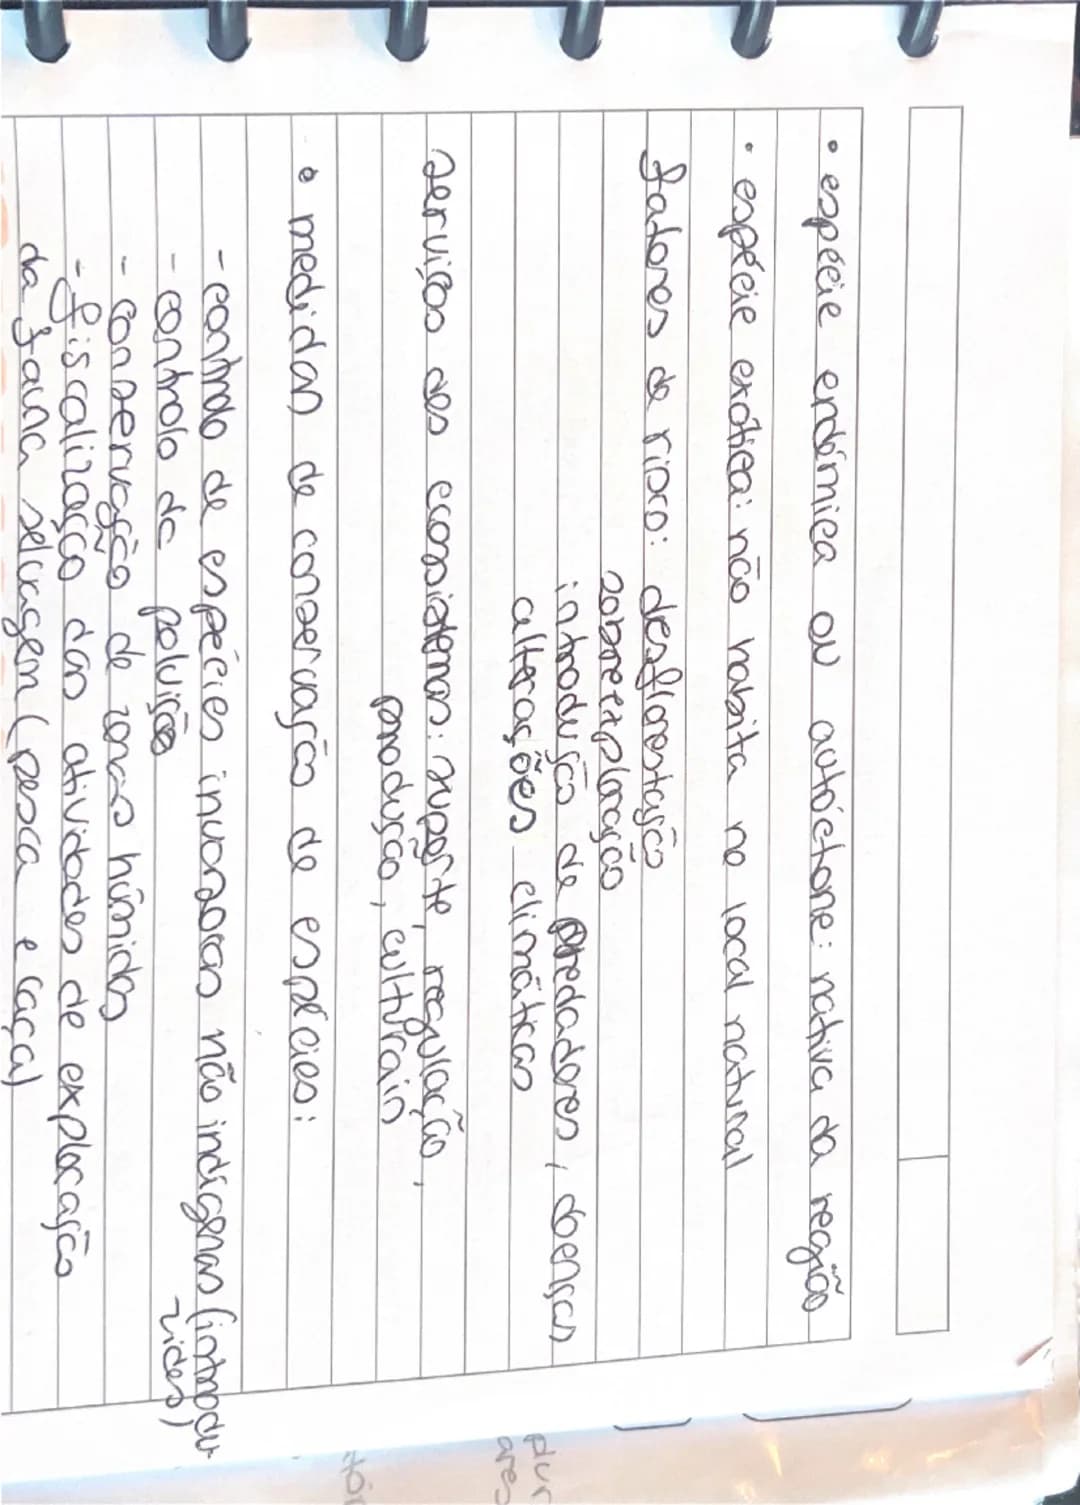 • espécie endémica ou autóctone: nativa da região
• espécie exótica: não habita no local natural
fatores de risco: desflorestação
sobreexploração
introdução de predadores, doenças
alterações climáticas
serviços dos ecossistemas: suporte, regulação,
produção, culturais
• medidas de conservação de espécies:
- controlo de espécies invasoras não indígenas (introdu-
zidas)
- controlo de poluição
- conservação de zonas húmidas
- fiscalização das atividades de exploração
da fauna selvagem (pesca e caça)